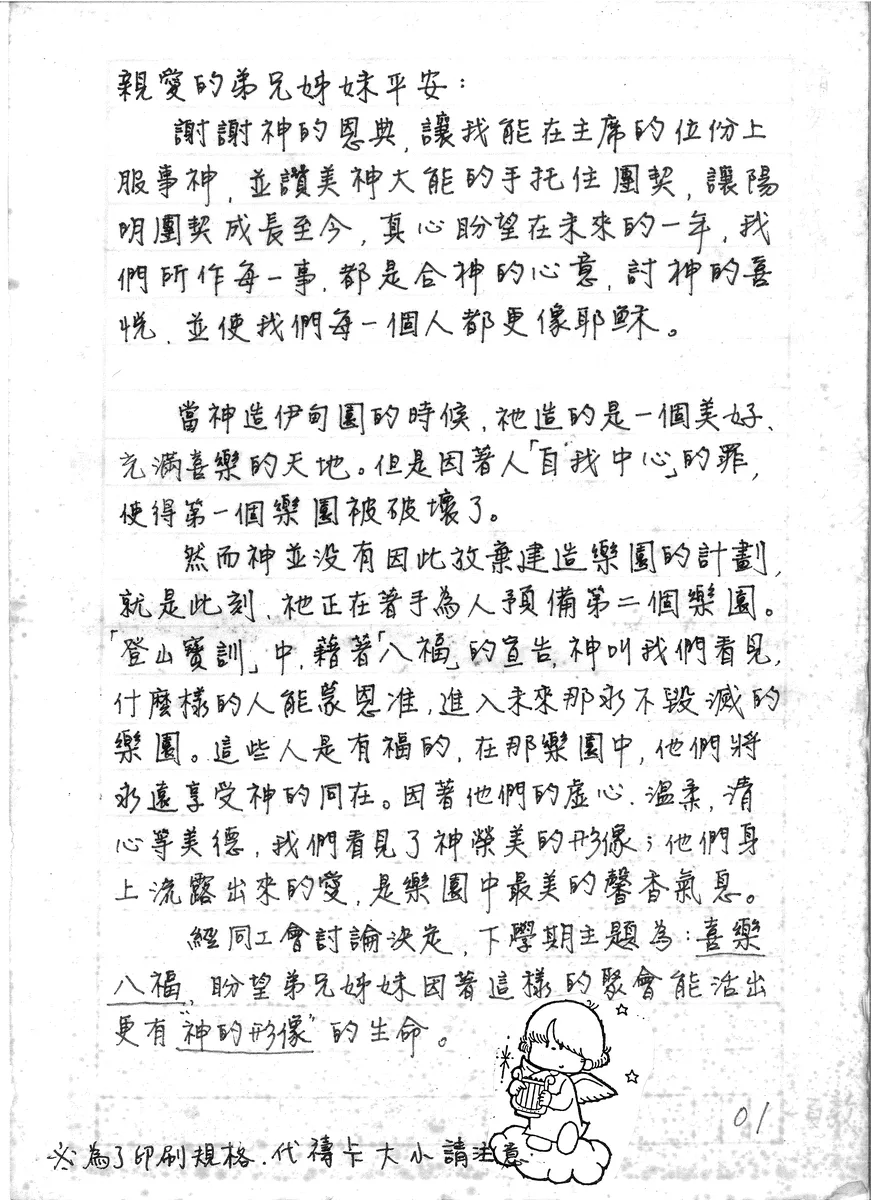 親愛的弟兄姊妹平安：
謝謝神的恩典，讓我能在主席的位份上
服事神，並讚美神大能的手托住團契，讓陽
明團契成長至今，真心盼望在未來的一年，我
們所作每一事，都是合神的心意，討神的喜
悅，並使我們每一個人都更像耶穌。
當神造伊甸園的時候，祂造的是一個美好、
充滿喜樂的天地。但是因著人「自我中心」的罪，
使得第一個樂園被破壞了。
然而神並沒有因此放棄建造樂園的計劃，
就是此刻，祂正在著手為人預備第二個樂園。
「登山寶訓」中，藉著「八福」的宣告，神叫我們看見，
什麼樣的人能蒙恩准，進入未來那永不毀滅的
樂園。這些人是有福的，在那樂園中，他們將
永遠享受神的同在。因著他們的虛心、溫柔，清
心等美德，我們看見了神榮美的形像；他們身
上流露出來的愛，是樂園中最美的馨香氣息。
經同工會討論決定，下學期主題為：喜樂
八福，盼望弟兄姊妹因著這樣的聚會能活出
更有"神的形像"的生命。
01
※為了印刷規格，代禱卡大小請注意